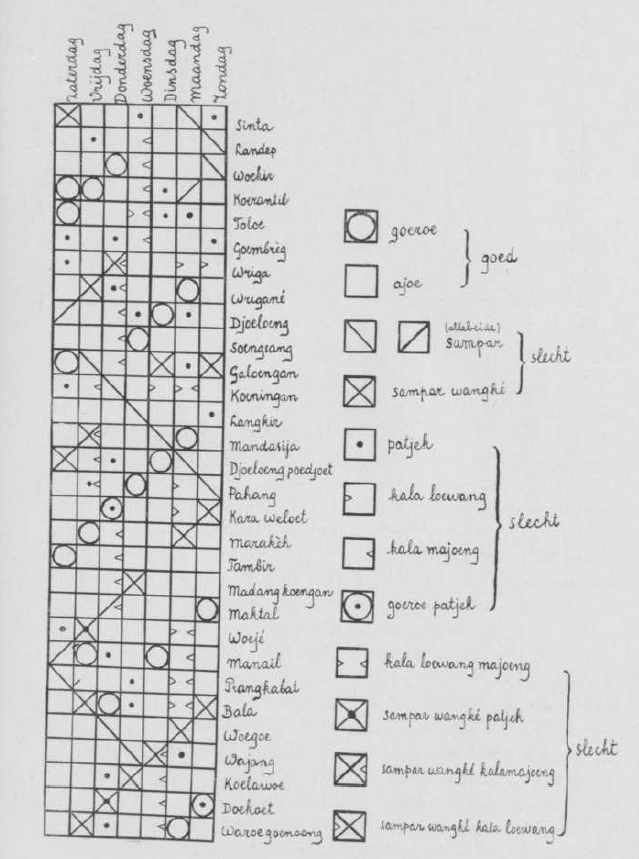 Zaterdag
Vrijdag
Donderdag
Woensdag
Dinsdag
Maandag
Zondag
Sinta
Landep
Woekir
Koerantil
Toloe
Goembrèg
Wriga
Wrigané
Djoeloeng
Soengsang
Galoengan
Koeningan
Langkir
Mandasija
Djoeloeng poedjoet
Pahang
Kara weloet
Marakèh
Tambir
Madang koengan
Maktal
Woejé
Manail
Prangkabat
Bala
Woegoe
Wajang
Koelawoe
Doekoet
Waroe goenoeng
goeroe
ajoe
goed
(allebeide)
sampar
sampar wangké
slecht
patjek
kala loewang
kala majoeng
goeroe patjek
slecht
kala loewang majoeng
sampar wangké patjek
sampar wangké kalamajoeng
sampar wangké kala loewang
slecht